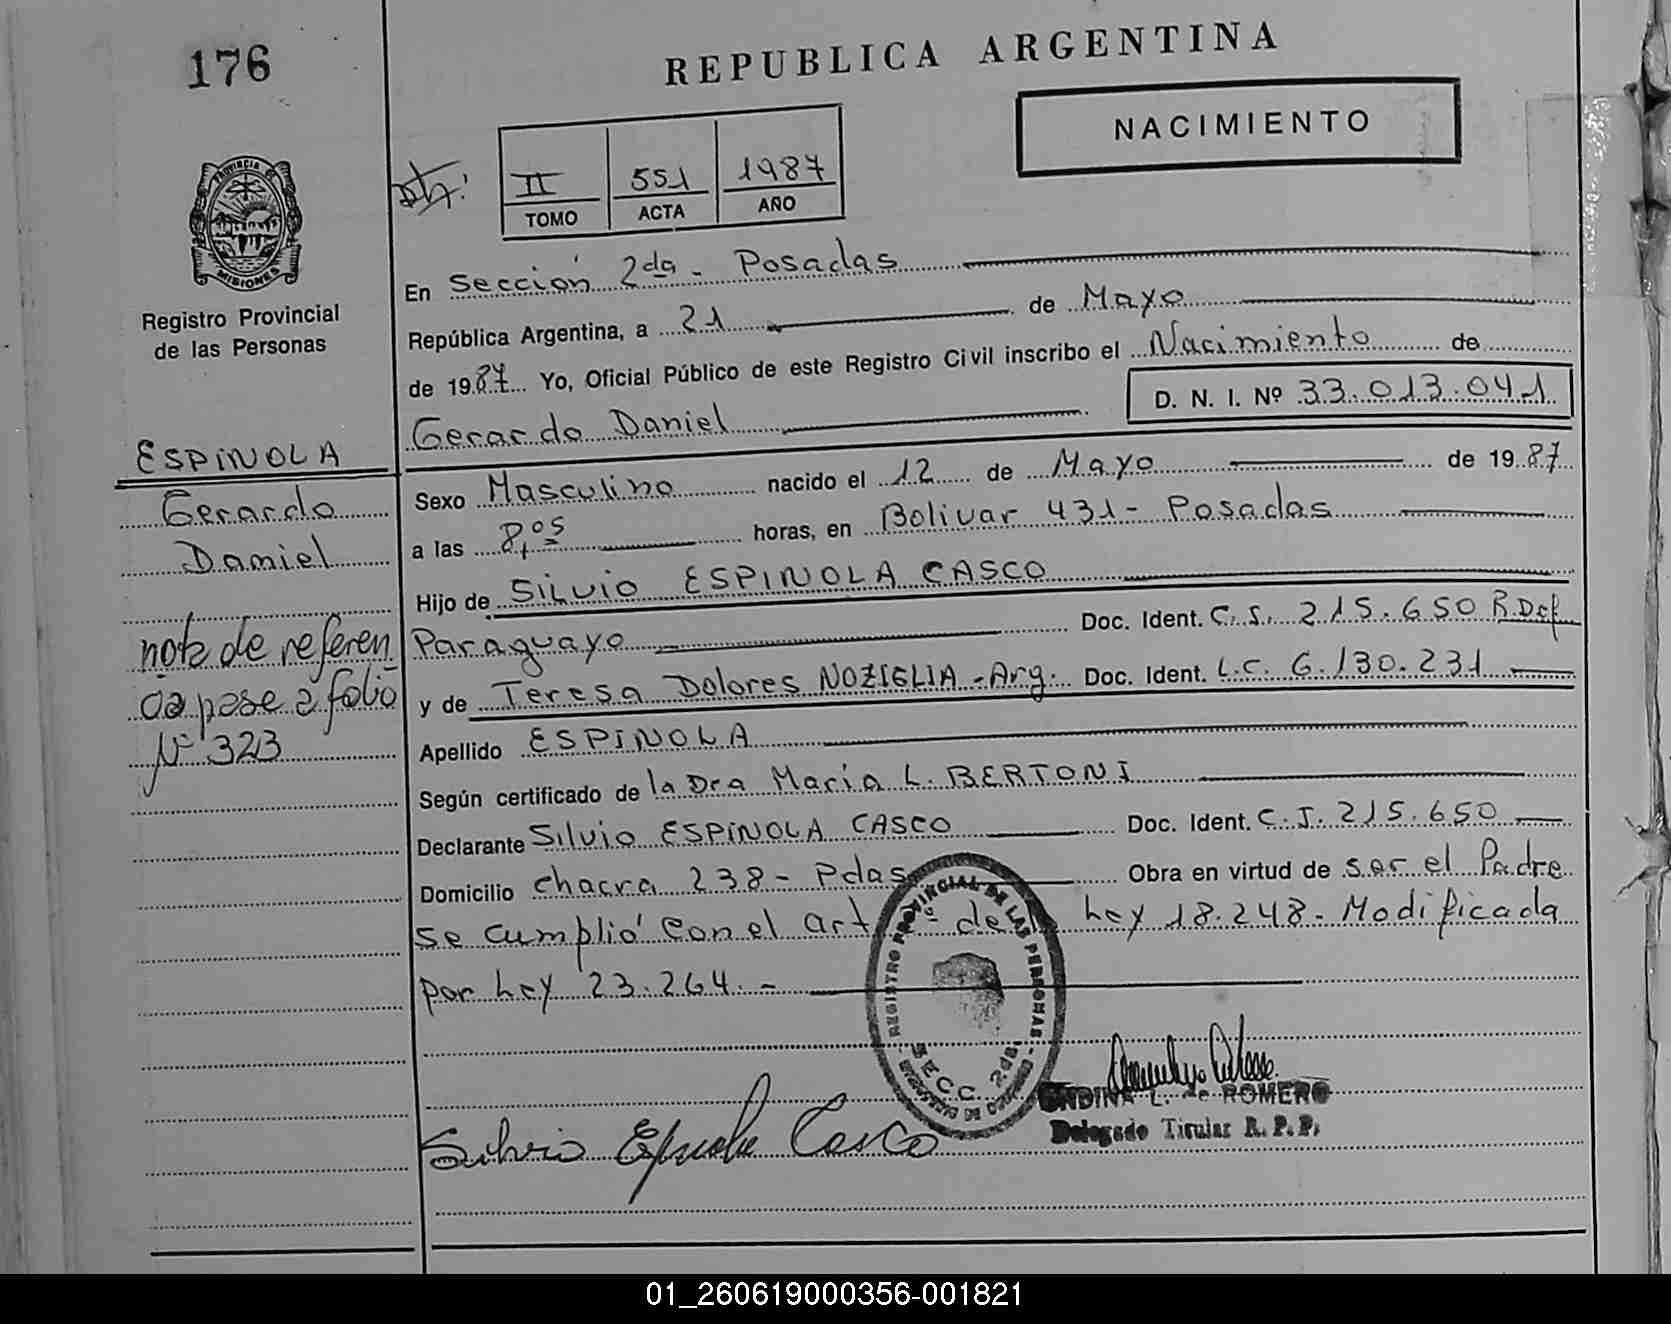 176
REPUBLICA ARGENTINA
NACIMIENTO
II 551 1987
TOMO ACTA AÑO
PROVINCIA DE
MISIONES
Registro Provincial
de las Personas
En Sección 2da - Posadas
República Argentina, a 21 de Mayo
de 1987 Yo, Oficial Público de este Registro Civil inscribo el Nacimiento de
Gerardo Daniel D. N. I. Nº 33.013.041
ESPINOLA
Gerardo
Daniel
Sexo Masculino nacido el 12 de Mayo de 1987
a las 8,05 horas, en Bolivar 431 - Posadas
Hijo de Silvio ESPINOLA CASCO
Paraguayo Doc. Ident. C.I. 215.650 R.Def
y de Teresa Dolores NOZIGLIA - Arg. Doc. Ident. L.C. 6.130.231
nota de referen
cia pase a folio
Nº 323
Apellido ESPINOLA
Según certificado de la Dra Maria L. BERTONI
Declarante Silvio ESPINOLA CASCO Doc. Ident. C.I. 215.650
Domicilio chacra 238 - Pdas Obra en virtud de ser el Padre
se cumplió con el art º de Ley 18.248 - Modificada
por Ley 23.264. -
REGISTRO PROVINCIAL DE LAS PERSONAS
SECC. 2da.
Silvio Espinola Casco
L. de ROMERO
Delegado Titular R. P. P.
01_260619000356-001821